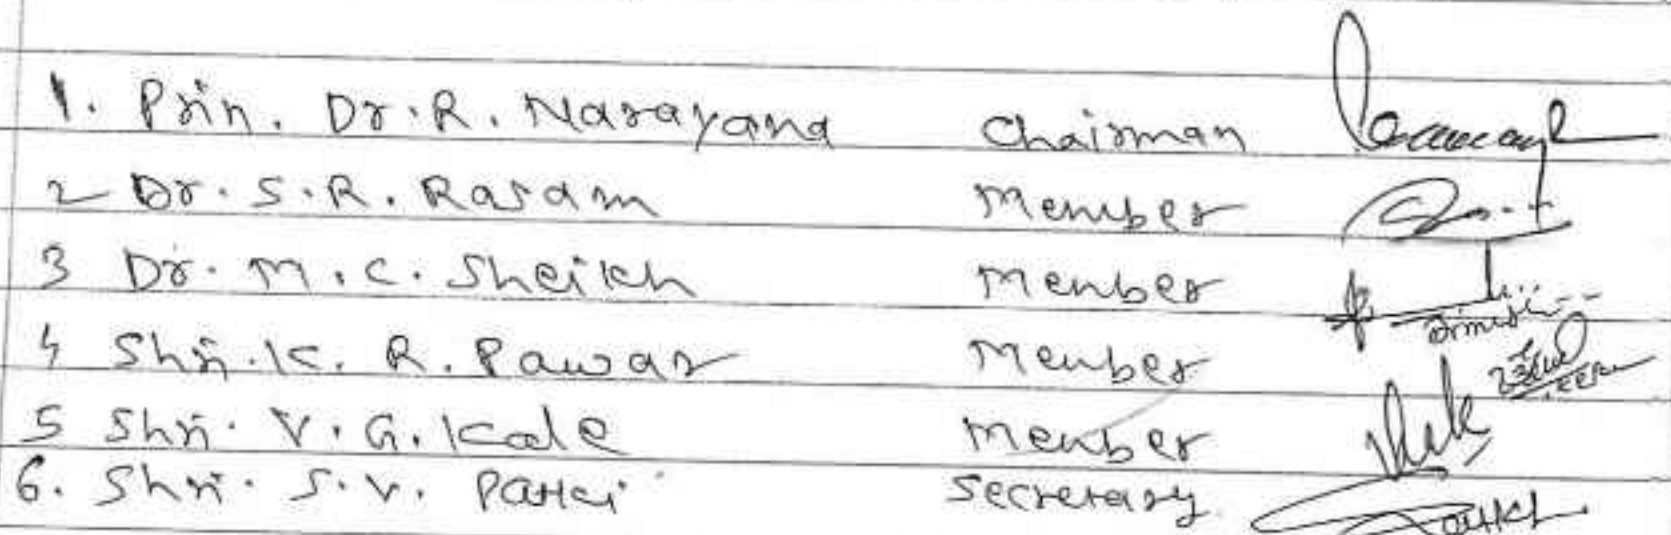 1. Prin. Dr. R. Narayana Chairman
2 Dr. S. R. Rasam Member
3 Dr. M. C. Sheikh Member
4 Shri. K. R. Pawar Member
5 Shri. V. G. Kale Member
6. Shri. S. V. Patki Secretary